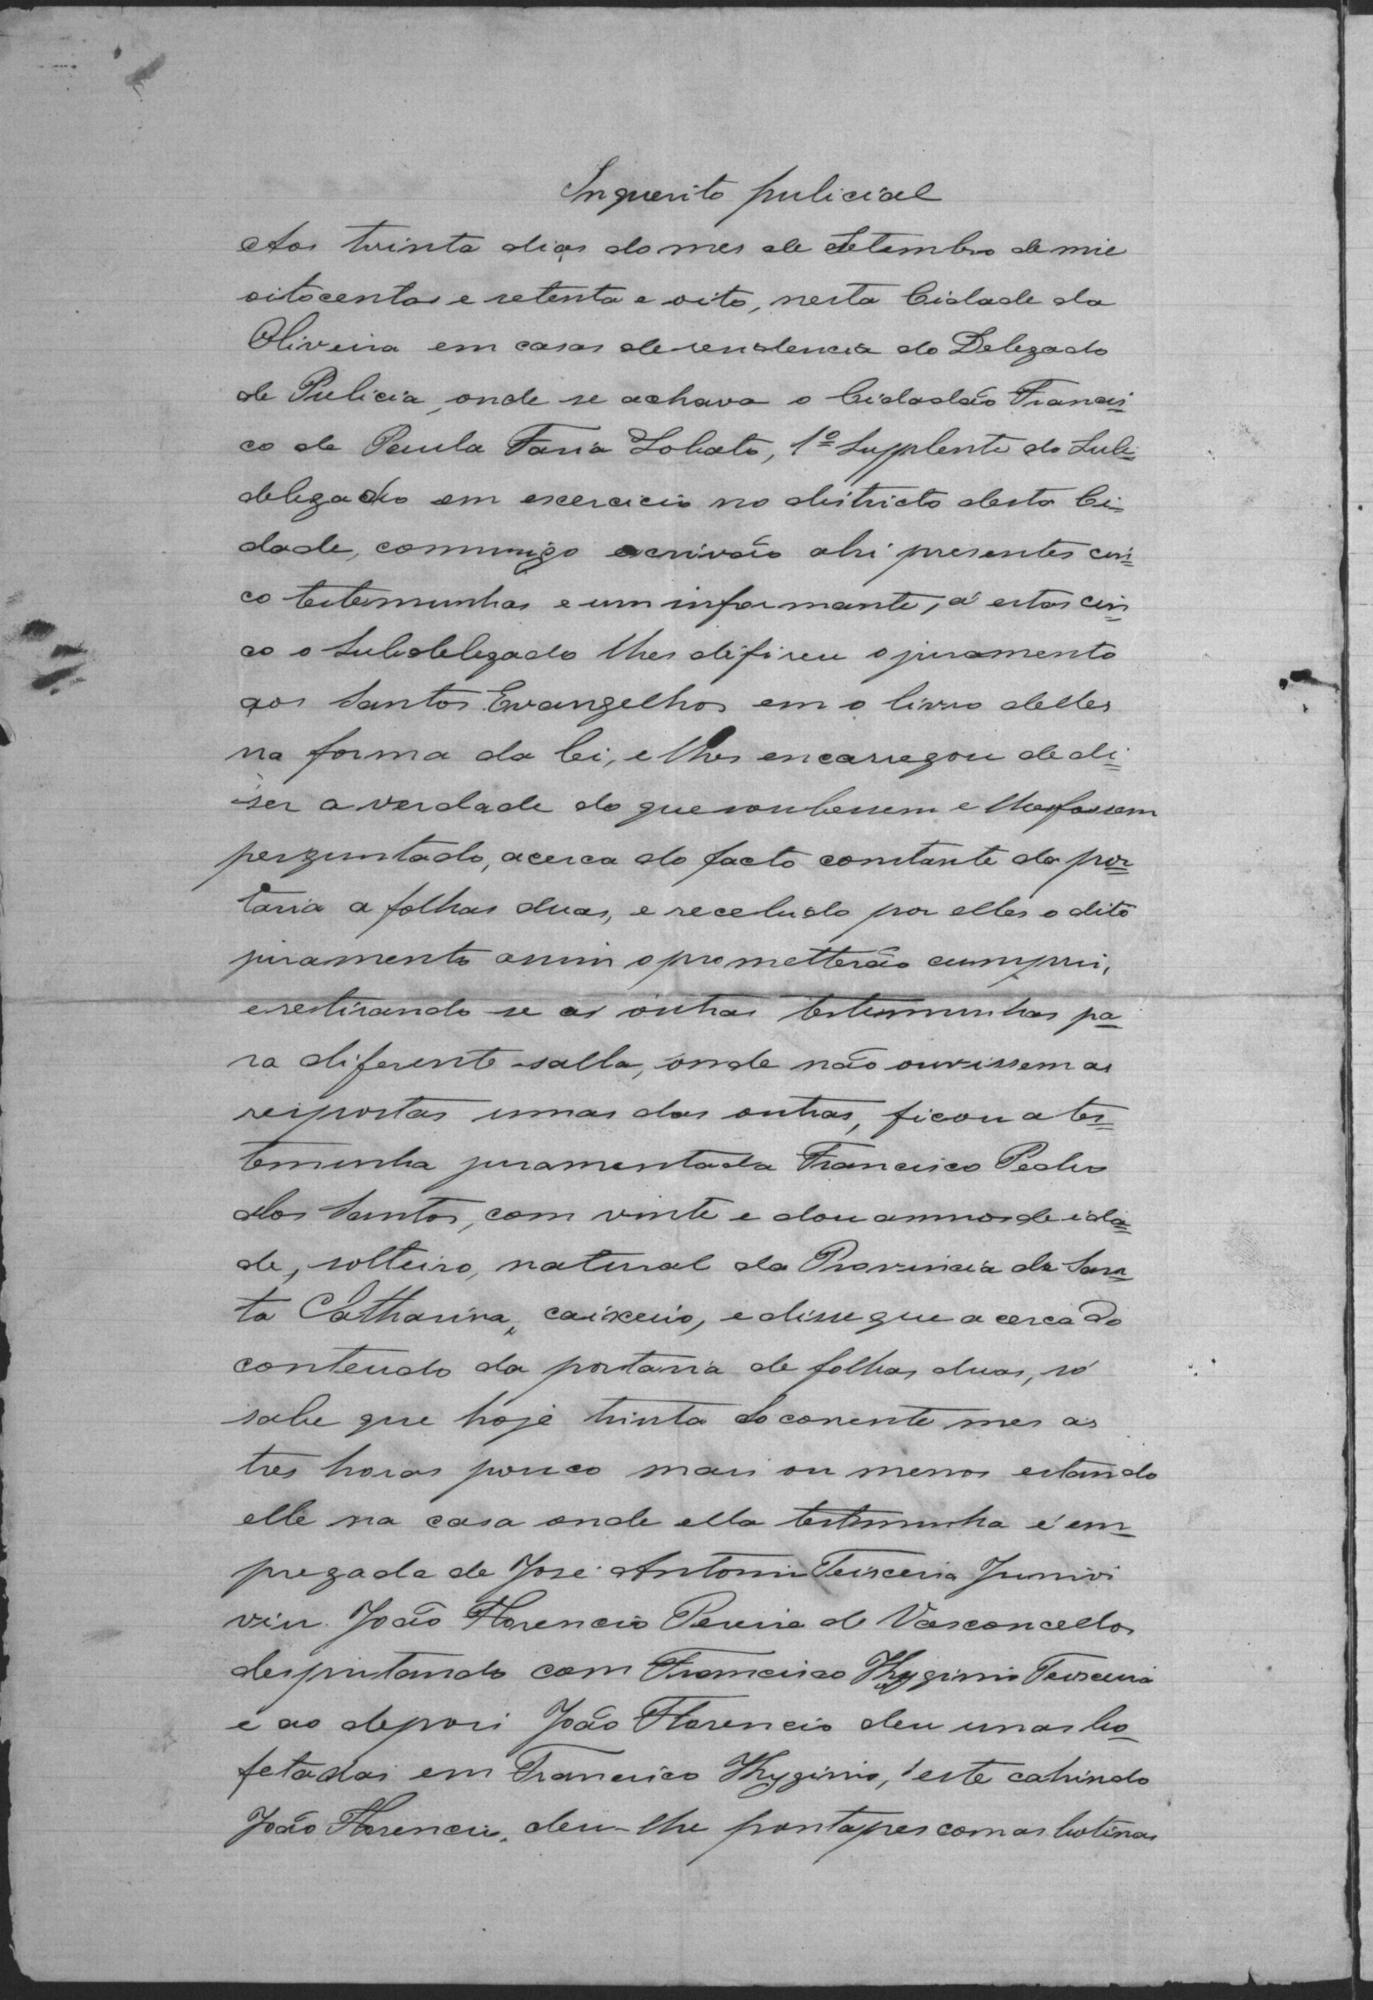 Inquerito pulicial
Aos trinta dias do mes de Setembro de mil
oitocentos e setenta e oito, nesta Cidade da
Oliveira em casas de residencia do Delegado
de Pulicia, onde se achava o Cidadão Francis=
co de Paula Faria Lobato, 1º Supplente do Sub=
delegado em excercicio no districto desta Ci=
dade, commigo escrivão ahi presentes cin=
co testemunhas e um informante, á estas cin=
co o Subdelegado lhes difireu o juramento
aos Santos Evangelhos em o livro delles
na forma da lei, e lhes encarregou de di=
ser a verdade do que soubessem e lhes fossem
perguntado, acerca do facto constante da por=
taria a folhas duas, e recebido por elles o dito
juramento assim o prometterão cumprir,
e restirando se as outras testemunhas pa=
ra diferente salla, onde não ouvissem as
respostas umas das outras, ficou a tes=
temunha juramentada Francisco Pedro
dos Santos, com vinte e dous annos de ida=
de, solteiro, natural da Provincia de San=
ta Catharina, caixeiro, e disse que a cerca do
conteudo da portaria de folhas duas, só
sabe que hoje trinta do corrente mes as
tres horas pouco mais ou menos estando
elle na casa onde ella testemunha é em=
pregada de José Antonio Teixceira Junior
viu João Florencio Pereira de Vasconcellos
desputando com Francisco Hygino Teixceira
e ao depois João Florencio deu umas bo=
fetadas em Francisco Hyginio, e este cahindo
João Florencio, deu-lhe pontapes com as botinas